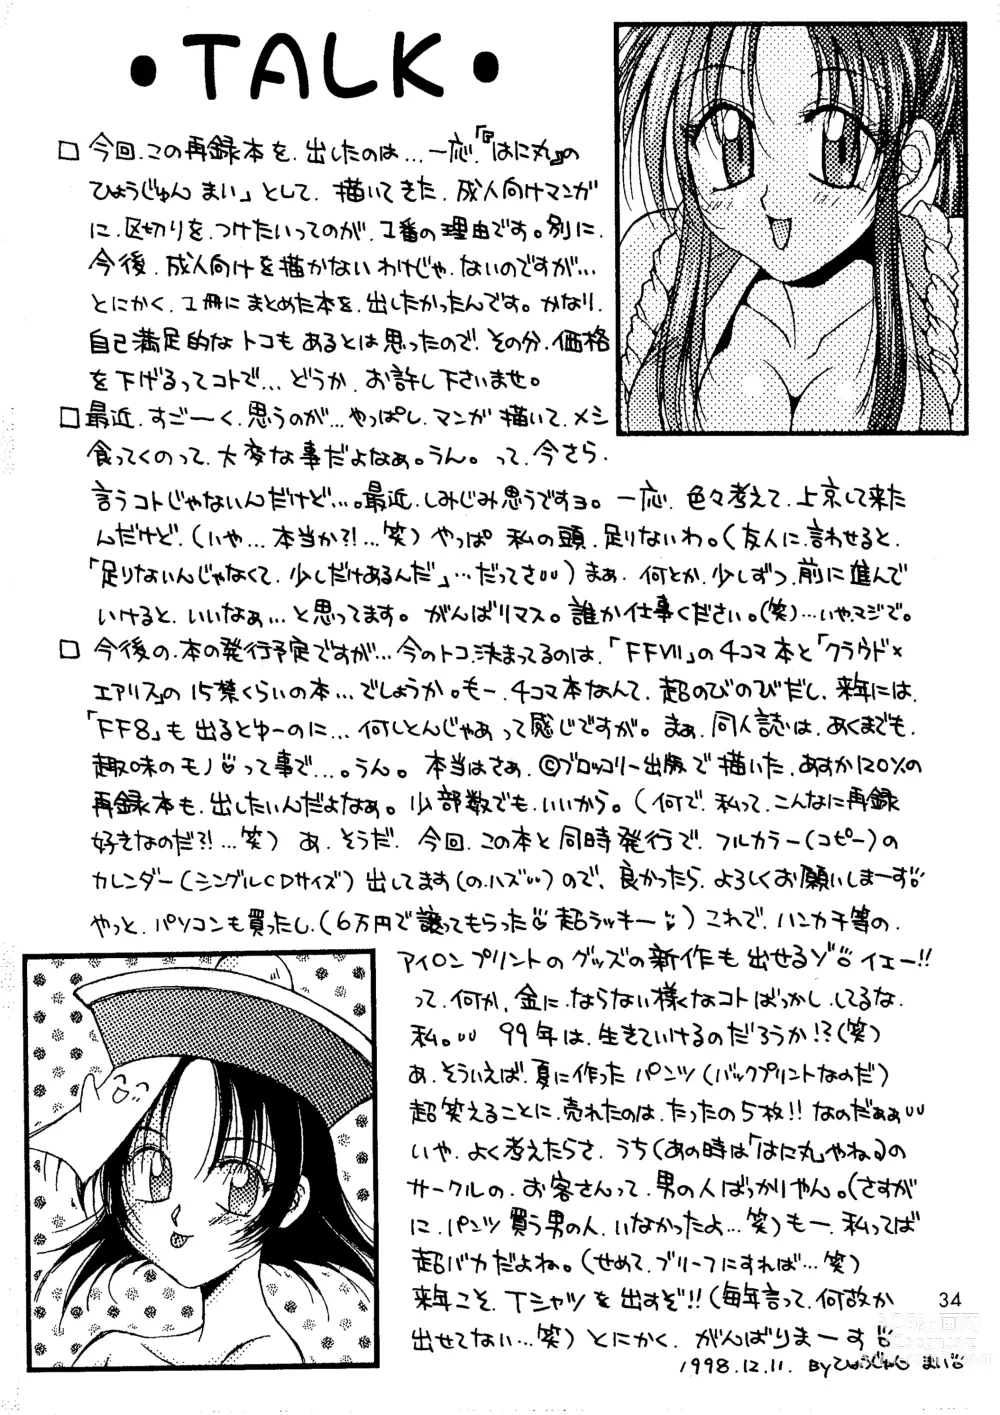 ・TALK・
□ 今回、この再録本を、出したのは…一応、「『はに丸』の
ひょうじゅん まい」として、描いてきた、成人向けマンガ
に、区切りを、つけたいってのが、1番の理由です。別に、
今後、成人向けを描かないわけじゃ、ないのですが…
とにかく、1冊にまとめた本を、出したかったんです。かなり、
自己満足的なトコもあるとは思ったので、その分、価格
を下げるってコトで…どうか、お許し下さいませ。
□ 最近、すご～く、思うのが…やっぱし、マンガ描いて、メシ
食ってくのって、大変な事だよなぁ。うん。って、今さら、
言うコトじゃないんだけど…。最近、しみじみ思うですヨ。一応、色々考えて、上京して来た
んだけど、(いや…本当か?!…笑) やっぱ 私の頭、足りないわ。(友人に、言わせると、
「足りないんじゃなくて、少しだけあるんだ」…だってさ) まぁ、何とか、少しずつ、前に進んで
いけると、いいなぁ…と思ってます。がんばリマス。誰か仕事ください。(笑)…いや、マジで。
□ 今後の、本の発行予定ですが…今のトコ、決まってるのは、「FFVII」の4コマ本と「クラウド×
エアリス」の15禁くらいの本…でしょうか。もー、4コマ本なんて、超のびのびだし、来年には、
「FF8」も出るとゆーのに…何しとんじゃあって感じですが。まぁ、同人誌は、あくまでも、
趣味のモノって事で…。うん。本当はさぁ、©ブロッコリー出版で描いた、あすか120%の
再録本も、出したいんだよなぁ。少部数でも、いいから。(何で、私って、こんなに再録
好きなのだ?!…笑) あ、そうだ、今回、この本と同時発行で、フルカラー(コピー)の
カレンダー(シングルCDサイズ) 出してます(の、ハズ)ので、良かったら、よろしくお願いしまーす
やっと、パソコンも買ったし、(6万円で譲ってもらった 超ラッキー) これで、ハンカチ等の、
アイロンプリントのグッズの新作も出せるゾ イエー!!
って、何か、金に、ならない様なコトばっかし、してるな、
私。 99年は、生きていけるのだろうか!?(笑)
あ、そういえば、夏に作ったパンツ(バックプリントなのだ)
超笑えることに、売れたのは、たったの5枚!! なのだぁぁ
いや、よく考えたらさ、うち(あの時は「はに丸」やねる)の
サークルの、お客さんって、男の人ばっかりやん。(さすが
に、パンツ買う男の人、いなかったよ…笑) もー、私ってば
超バカだよね。(せめて、ブリーフにすれば…笑)
来年こそ、Tシャツを出すぞ!! (毎年言って、何故か
出せてない…笑) とにかく、がんばりまーす
1998.12.11. By ひょうじゅん まい
34